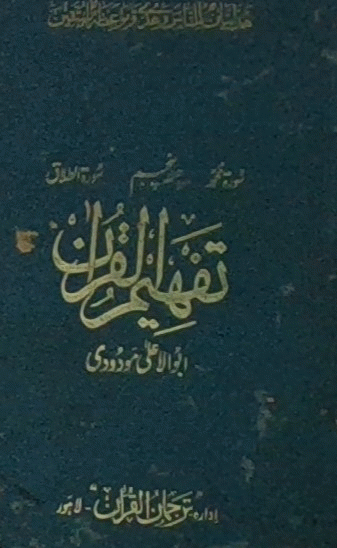 هذا بيان للناس وهدى وموعظة للمتقين
سورة محمد جلد پنجم سورة الطلاق
تفہیم القرآن
ابوالاعلیٰ مودودی
ادارہ ترجمان القرآن - لاہور